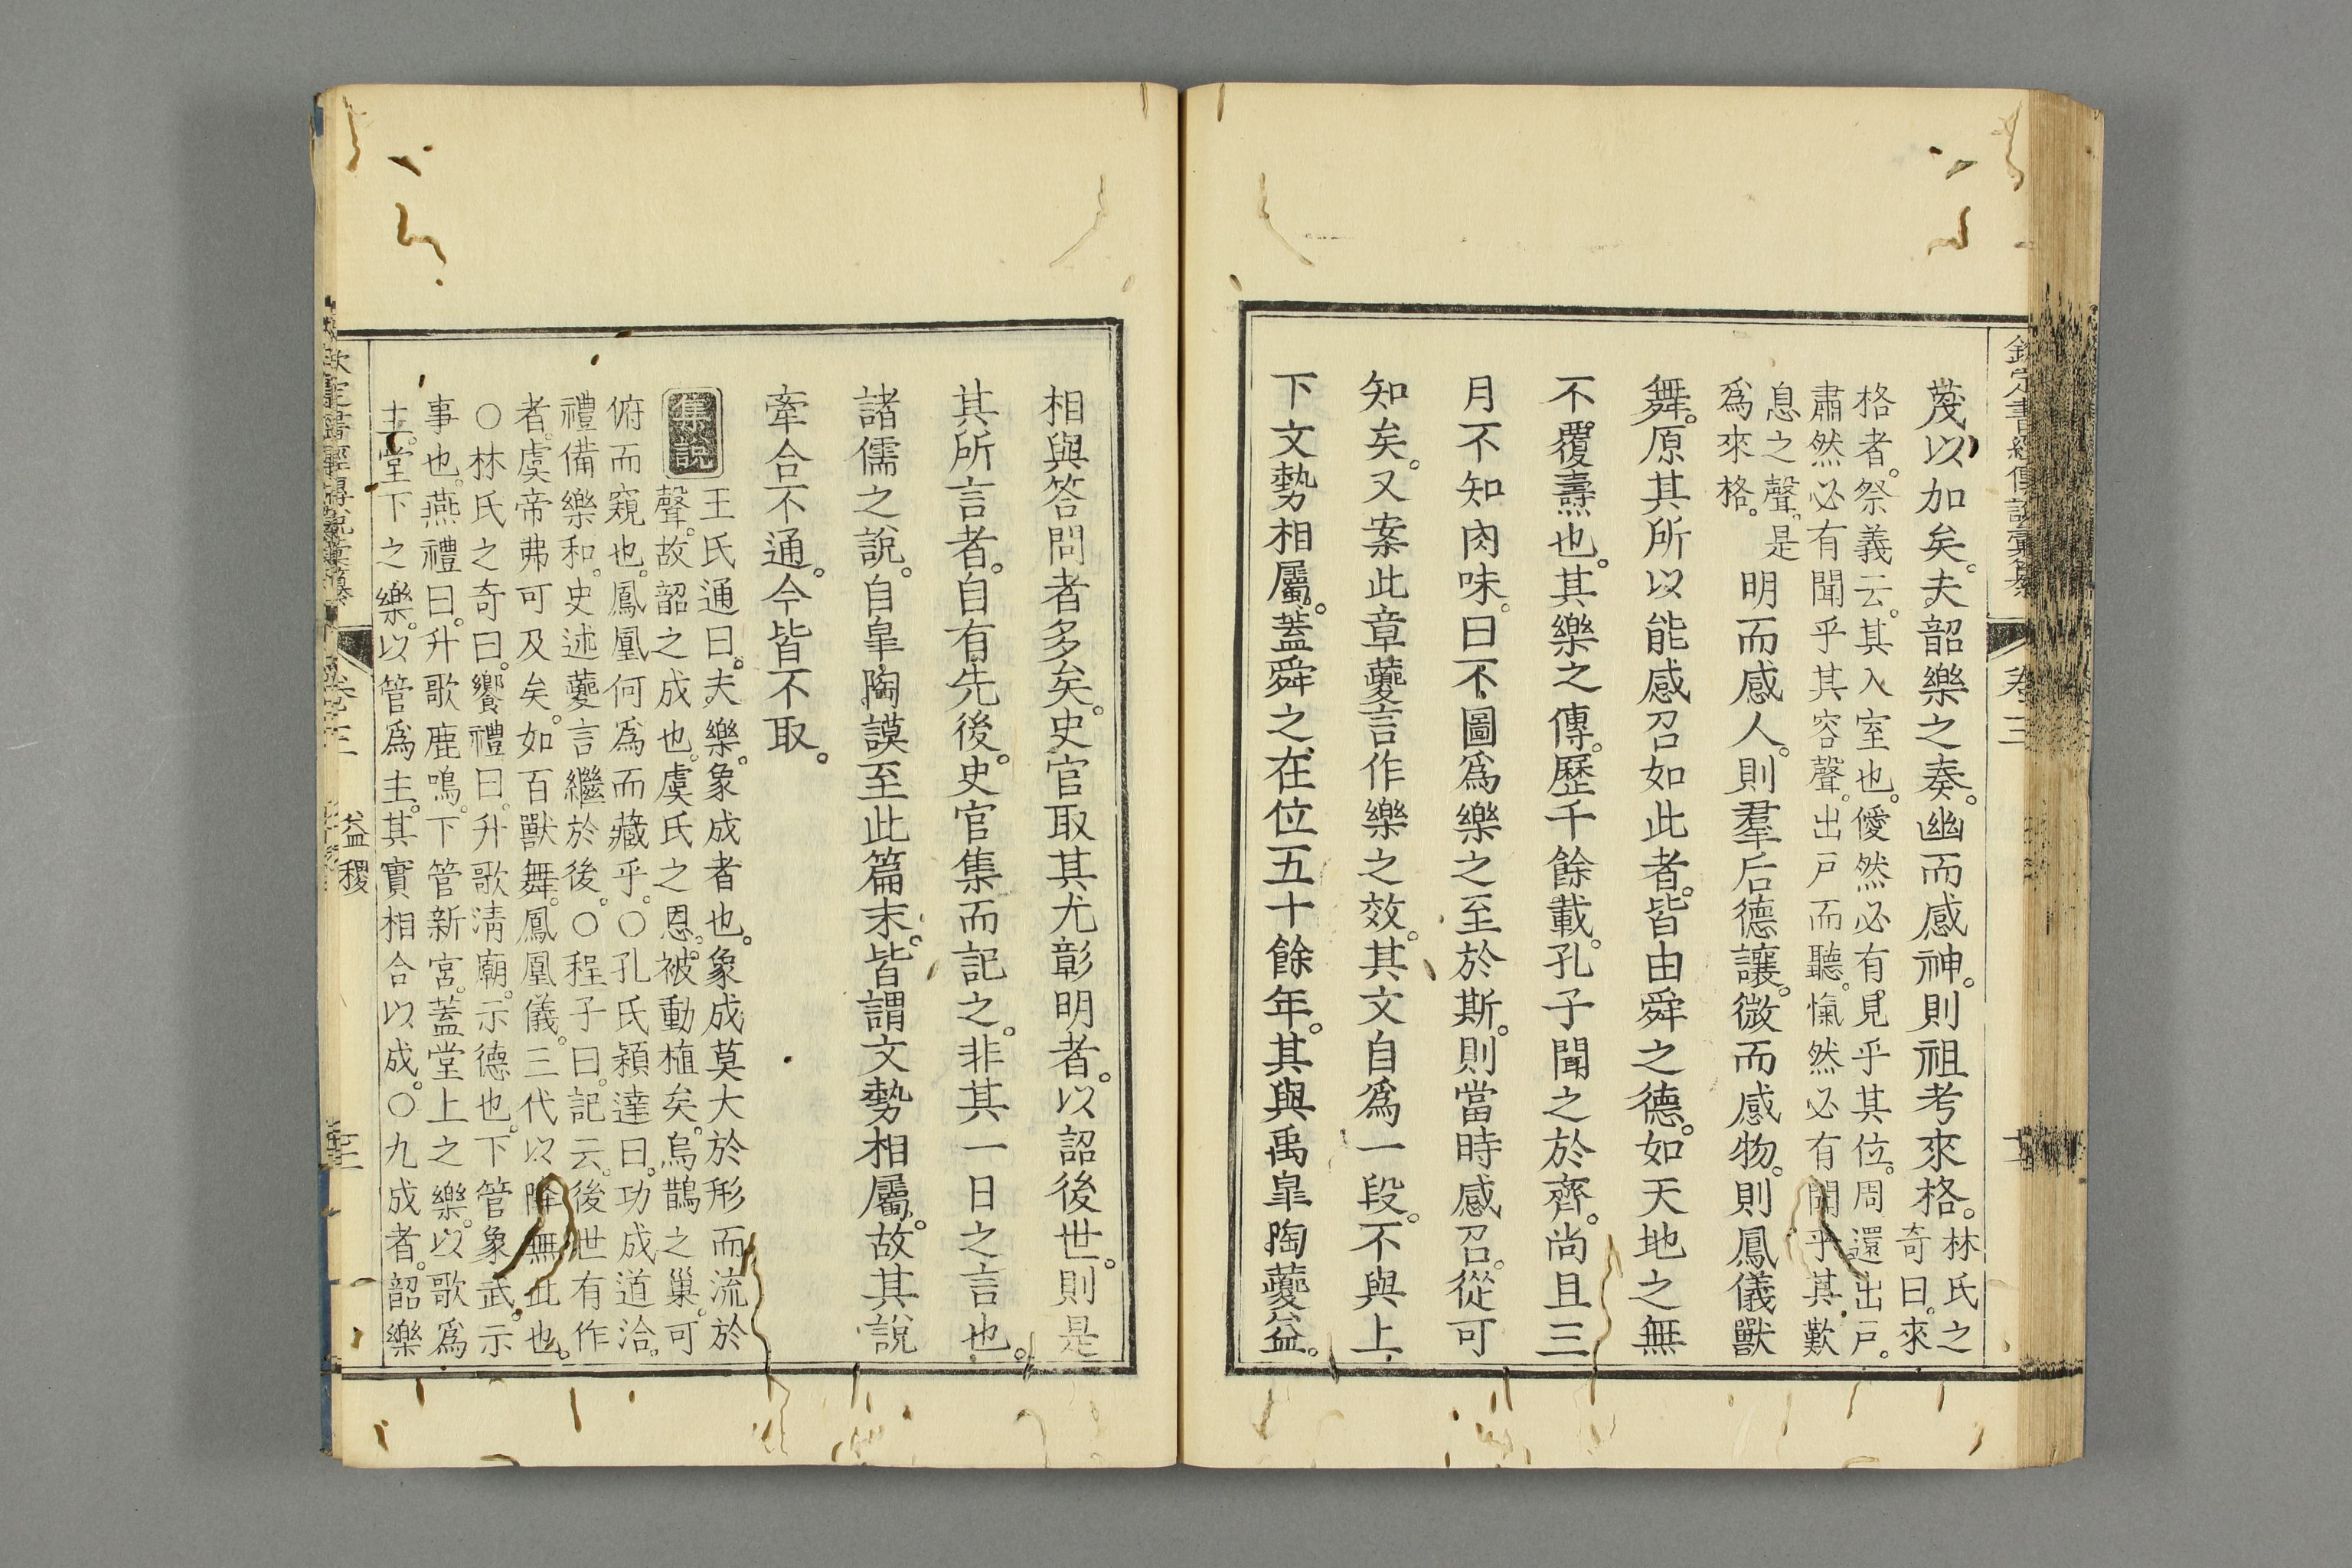 欽定書經傳說彙纂 卷三
蔑以加矣。夫韶樂之奏。幽而感神。則祖考來格。林氏之
奇曰。來
格者。祭義云。其入室也。僾然必有見乎其位。周還出戶。
肅然必有聞乎其容聲。出戶而聽。愾然必有聞乎其歎
息之聲。是
爲來格。
明而感人。則羣后德讓。微而感物。則鳳儀獸
舞。原其所以能感召如此者。皆由舜之德。如天地之無
不覆燾也。其樂之傳。歷千餘載。孔子聞之於齊。尚且三
月不知肉味。曰不圖爲樂之至於斯。則當時感召。從可
知矣。又案此章夔言作樂之效。其文自爲一段。不與上
下文勢相屬。蓋舜之在位五十餘年。其與禹皐陶夔益。
相與答問者多矣。史官取其尤彰明者。以詔後世。則是
其所言者。自有先後。史官集而記之。非其一日之言也。
諸儒之說。自皐陶謨至此篇末。皆謂文勢相屬。故其說
牽合不通。今皆不取。
集說
王氏通曰。夫樂。象成者也。象成莫大於形而流於
聲。故韶之成也。虞氏之恩。被動植矣。烏鵲之巢。可
俯而窺也。鳳凰何爲而藏乎。○孔氏穎達曰。功成道洽。
禮備樂和。史述夔言繼於後。○程子曰。記云。後世有作
者。虞帝弗可及矣。如百獸舞。鳳凰儀。三代以降無此也。
○林氏之奇曰。饗禮曰。升歌淸廟。示德也。下管象武。示
事也。燕禮曰。升歌鹿鳴。下管新宮。蓋堂上之樂。以歌爲
主。堂下之樂。以管爲主。其實相合以成。○九成者。韶樂
欽定書經傳說彙纂 卷三 益稷